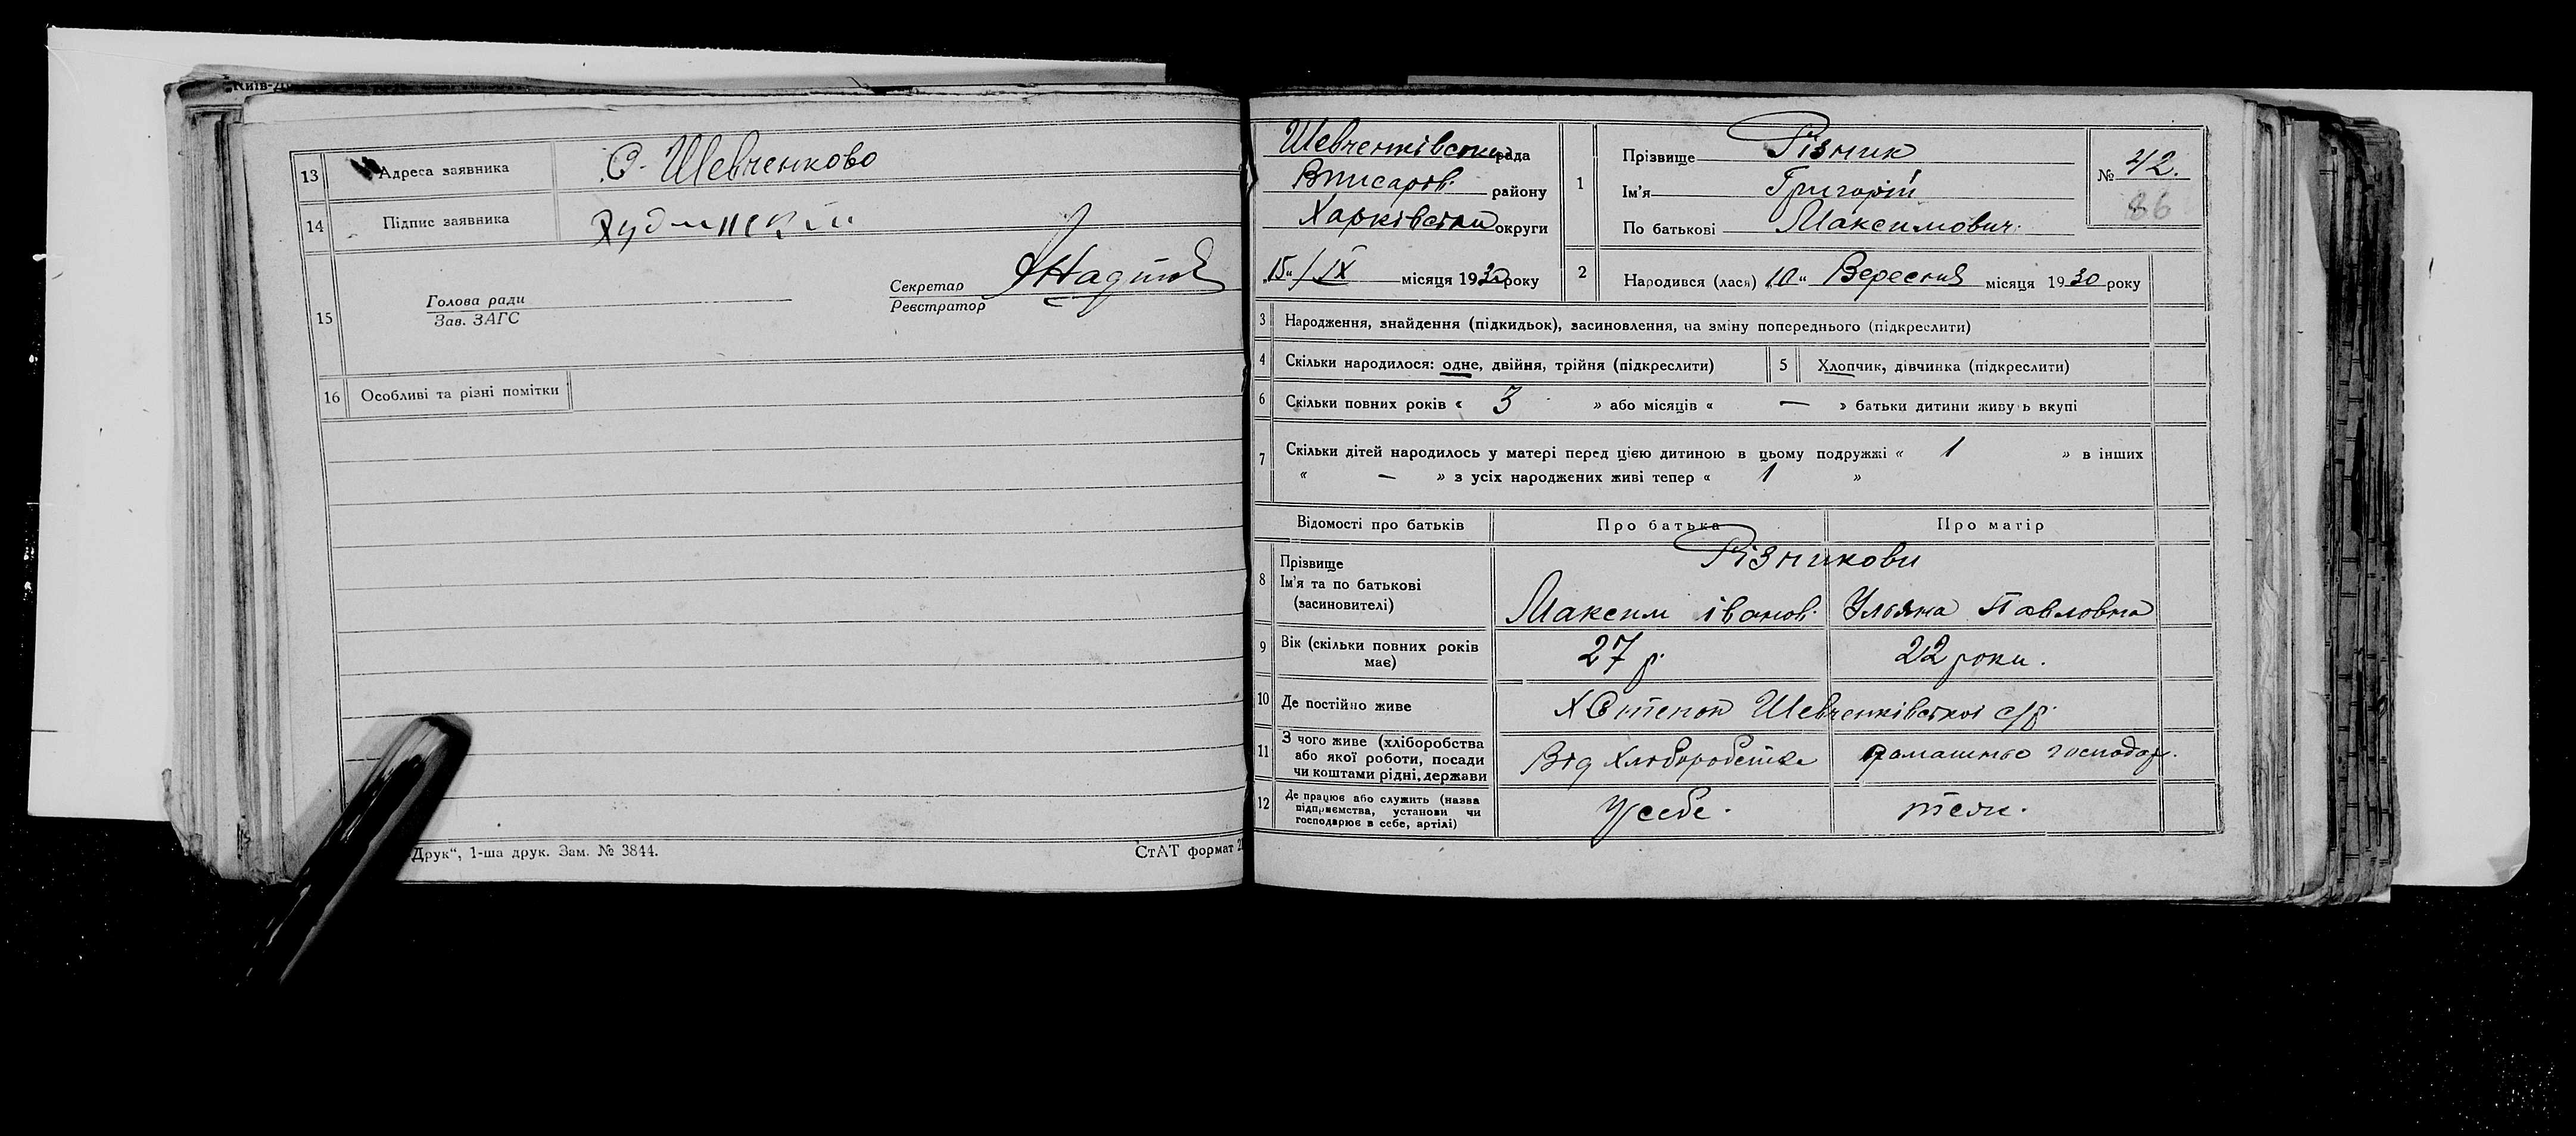 13 Адреса заявника С. Шевченково
14 Підпис заявника
15 Голова ради
Зав. ЗАГС
Секретар
Реєстратор
16 Особливі та різні помітки
Друк“, 1-ша друк. Зам. № 3844.
СтАТ формат
Шевченківська рада
району
Харківської округи
„15“/IX місяця 1930 року
1 Прізвище Різник
Ім’я Григорій
По батькові Максимович.
№ 42.
86
2 Народився (лася) „10“ Вересня місяця 1930 року
3 Народження, знайдення (підкидьок), засиновлення, на зміну попереднього (підкреслити)
4 Скільки народилося: одне, двійня, трійня (підкреслити) 5 Хлопчик, дівчинка (підкреслити)
6 Скільки повних років « 3 » або місяців « — » батьки дитини живу ь вкупі
7 Скільки дітей народилось у матері перед цією дитиною в цьому подружжі « 1 » в інших
« — » з усіх народжених живі тепер « 1 »
Відомості про батьків Про батька Про матір
8 Прізвище Різникови
Ім’я та по батькові
(засиновителі) Максим Іванов. Уляна Павловна
9 Вік (скільки повних років має) 27 р. 22 роки.
10 Де постійно живе Х Степок Шевченківської с/р.
11 З чого живе (хліборобства
або якої роботи, посади
чи коштами рідні, держави Від Хліборобства домашньо господар.
12 Де працює або служить (назва
підприємства, установи чи
господарює в себе, артілі) У себе. теж.